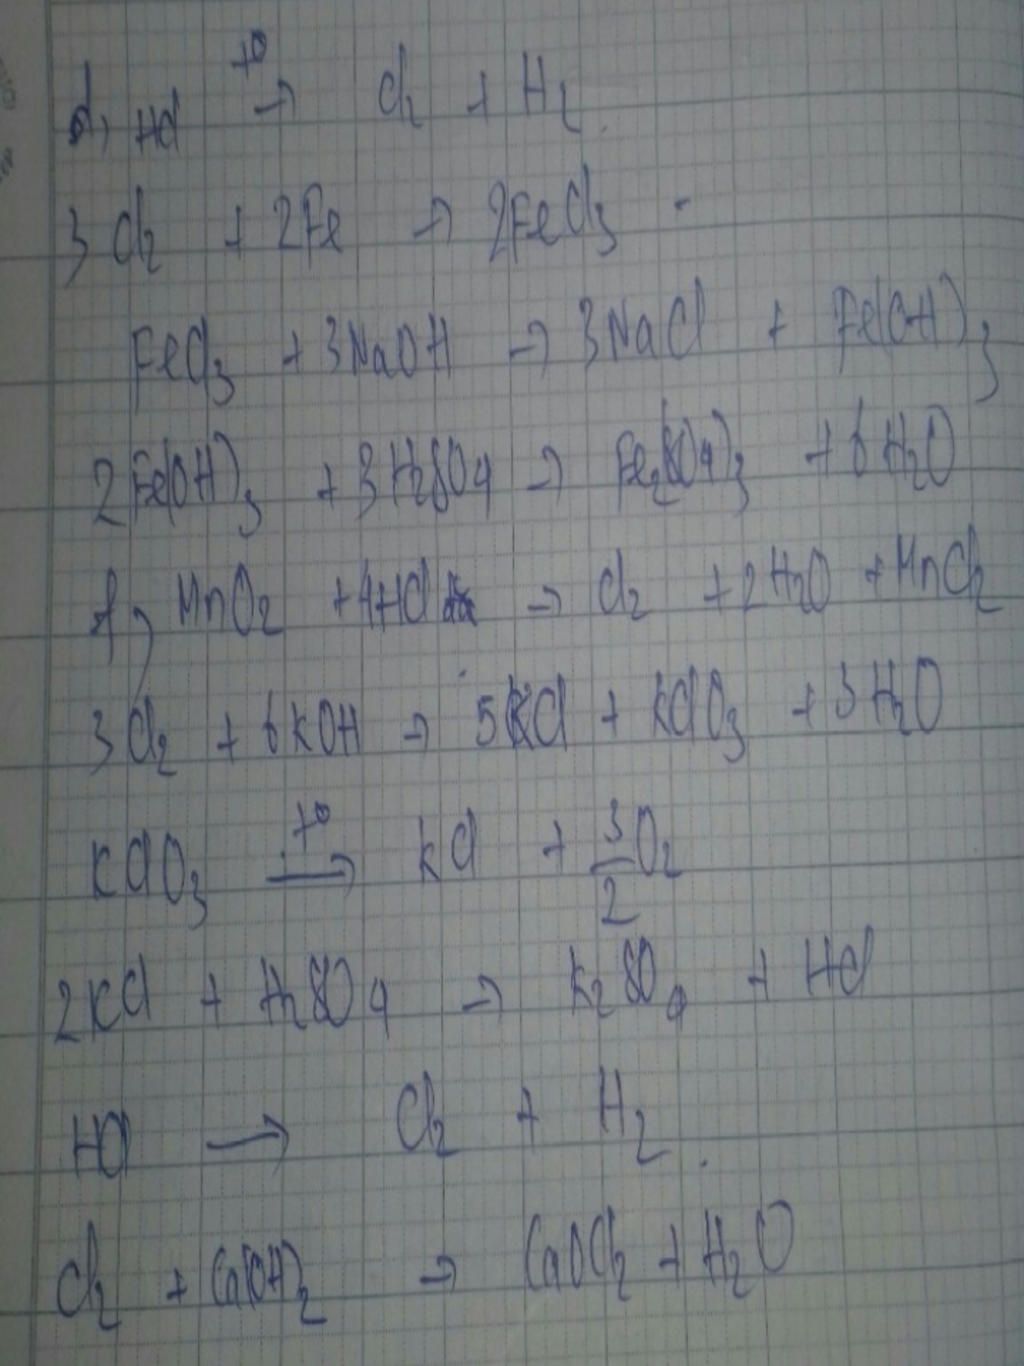 d, HCl t° → Cl2 + H2.
3 Cl2 + 2Fe → 2FeCl3
FeCl3 + 3NaOH → 3NaCl + Fe(OH)3
2Fe(OH)3 + 3H2SO4 → Fe2(SO4)3 + 6H2O
f, MnO2 + 4HCl → Cl2 + 2H2O + MnCl2
3Cl2 + 6KOH → 5KCl + KClO3 + 3H2O
KClO3 t° → KCl + 3/2 O2
2KCl + H2SO4 → K2SO4 + HCl
HCl → Cl2 + H2.
Cl2 + Ca(OH)2 → CaOCl2 + H2O